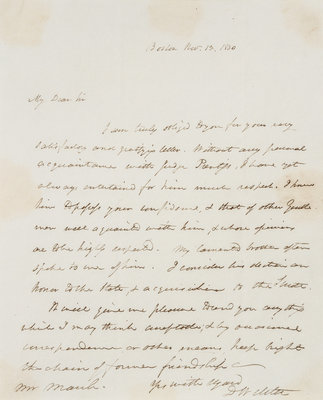 Boston Nov. 13. 1830
My Dear Sir
I am truly obliged to you for your very
satisfactory and gratifying letter. Without any personal
acquaintance with Judge Prentiss, I have yet
always entertained for him much respect. I knew
him to possess your confidence, & that of other Gentle
men well acquainted with him, & whose opinions
are to be highly respected. My lamented brother often
spoke to me of him. I consider his election an
honor to the State, & acquisition to the Senate.
It will give me pleasure to send you any thing
which I may think acceptable, & by occasional
correspondence or other means keep bright
the chain of former friendship
Yrs with regard
Mr Marsh.
D Webster